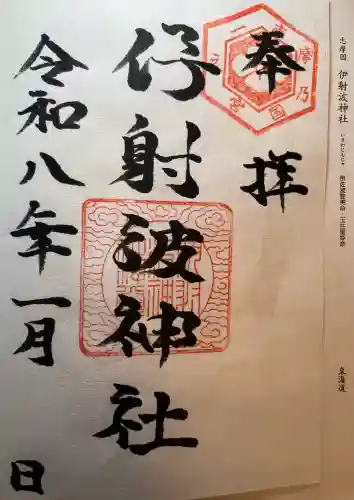 志摩国 伊射波神社
いさわじんじゃ
東海道
奉拝
志摩乃国一之宮
伊射波神社
令和八年一月 日